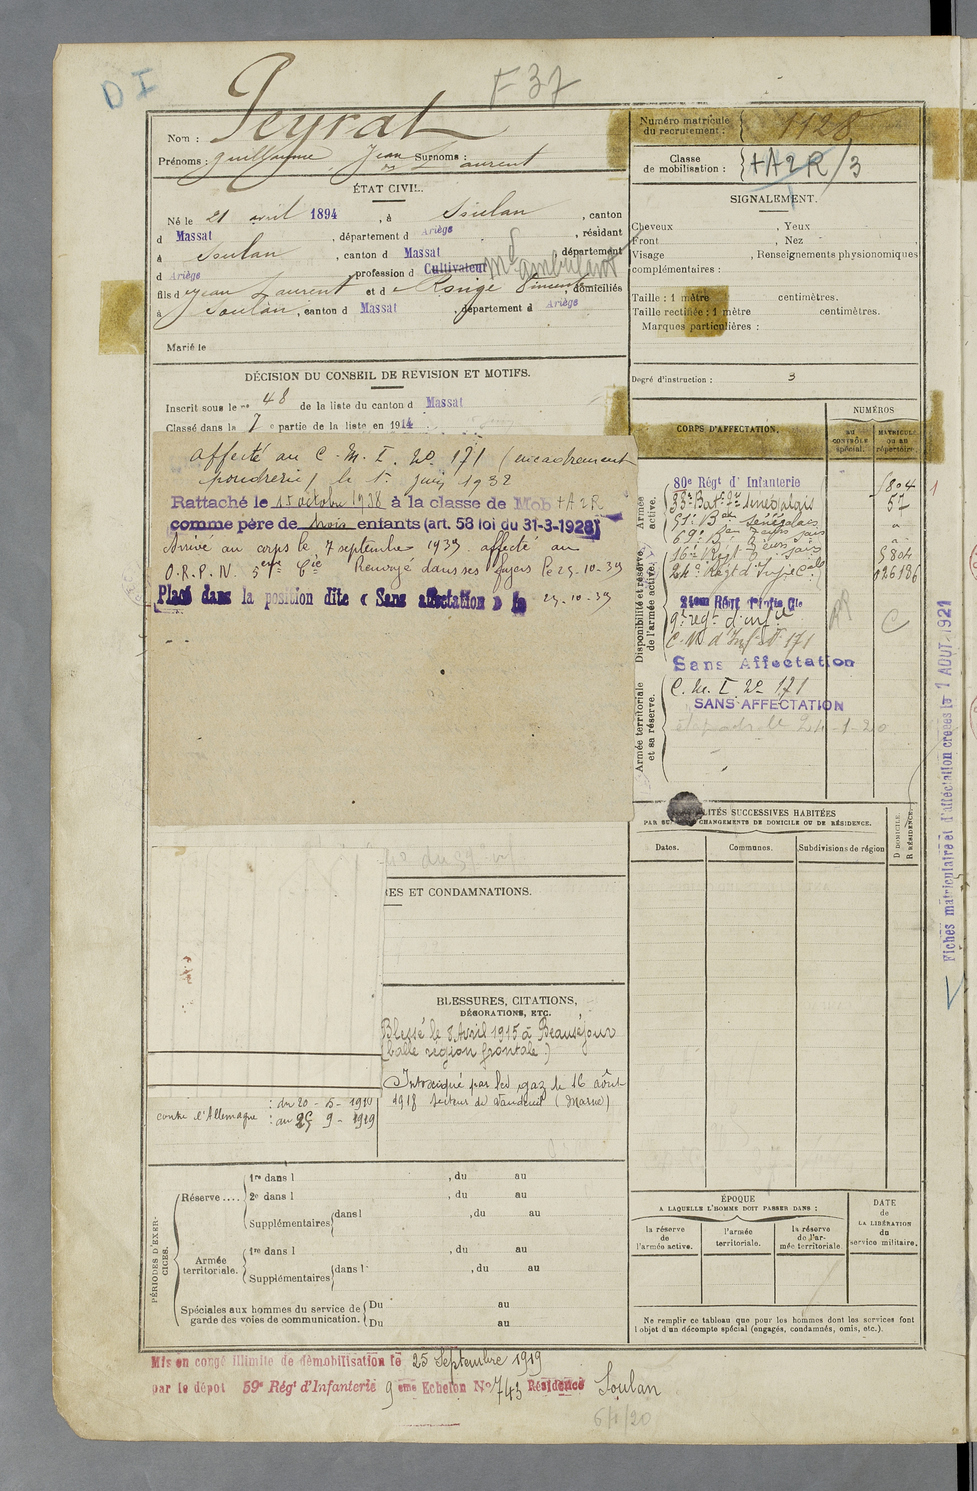 D I
F 37
Nom : Peyrat
Prénoms : Guillaume Jean Surnoms : Laurent
Numéro matricule du recrutement : 1128
Classe de mobilisation : +A2R/3
ÉTAT CIVIL.
Né le 21 avril 1894, à Soulan, canton
d Massat, département d Ariège, résidant
à Soulan, canton d Massat, département
d Ariège, profession d Cultivateur Md ambulant
fils d Jean Laurent et d Rouge Vincente, domiciliés
à Soulan, canton d Massat, département d Ariège
Marié le
SIGNALEMENT.
Cheveux , Yeux
Front , Nez
Visage , Renseignements physionomiques
complémentaires :
Taille : 1 mètre centimètres.
Taille rectifiée : 1 mètre centimètres.
Marques particulières :
Degré d'instruction : 3
DÉCISION DU CONSEIL DE REVISION ET MOTIFS.
Inscrit sous le n° 48 de la liste du canton d Massat
Classé dans la 7 e partie de la liste en 1914
affecté au C. M. I. no 171 (encadrement
poudrerie) le 1er juin 1932
Rattaché le 15 octobre 1938 à la classe de Mob +A2R
comme père de trois enfants (art. 58 loi du 31-3-1928)
Arrivé au corps le 7 septembre 1939 affecté au
O.R.P.N. 5eme Cie Renvoyé dans ses foyers le 29-10-39
Placé dans la position dite « Sans affectation » le 29-10-39
CORPS D'AFFECTATION.
NUMÉROS
au contrôle spécial.
matricule ou au répertoire.
Armée active.
80e Régt d'Infanterie 1804
Disponibilité et réserve de l'armée active.
24e Régt d'Inf Cole 126186
21eme Régt d'Infie Cle
9e régt d'infie
C.M d'Inf N° 171
Sans Affectation
Armée territoriale et sa réserve.
C. M. I. no 171
SANS AFFECTATION
Fiches matriculaire et d'affectation créées le 1 AOUT 1921
LOCALITÉS SUCCESSIVES HABITÉES
PAR SUITE DE CHANGEMENTS DE DOMICILE OU DE RÉSIDENCE.
Dates.
Communes.
Subdivisions de région
D DOMICILE.
R RÉSIDENCE.
RES ET CONDAMNATIONS.
BLESSURES, CITATIONS,
DÉCORATIONS, ETC.
Blessé le 8 Avril 1915 à Beauséjour
(balle région frontale)
Intoxiqué par les gaz le 16 août
1918 secteur de Vandeuil (Marne)
contre l'Allemagne : du 20-5-1910
: au 25-9-1919
PÉRIODES D'EXERCICES.
Réserve .... 1re dans l , du au
2e dans l , du au
Supplémentaires dans l , du au
Armée territoriale. 1re dans l , du au
Supplémentaires dans l , du au
Spéciales aux hommes du service de
garde des voies de communication. Du au
Du au
ÉPOQUE
A LAQUELLE L'HOMME DOIT PASSER DANS :
la réserve de l'armée active.
l'armée territoriale.
la réserve de l'armée territoriale
DATE de LA LIBÉRATION du service militaire.
Ne remplir ce tableau que pour les hommes dont les services font
l'objet d'un décompte spécial (engagés, condamnés, omis, etc.).
Mis en congé illimité de démobilisation le 25 Septembre 1919
par le dépôt 59e Régt d'Infanterie 9 eme Echelon No 743 Résidence Soulan
6/1/20